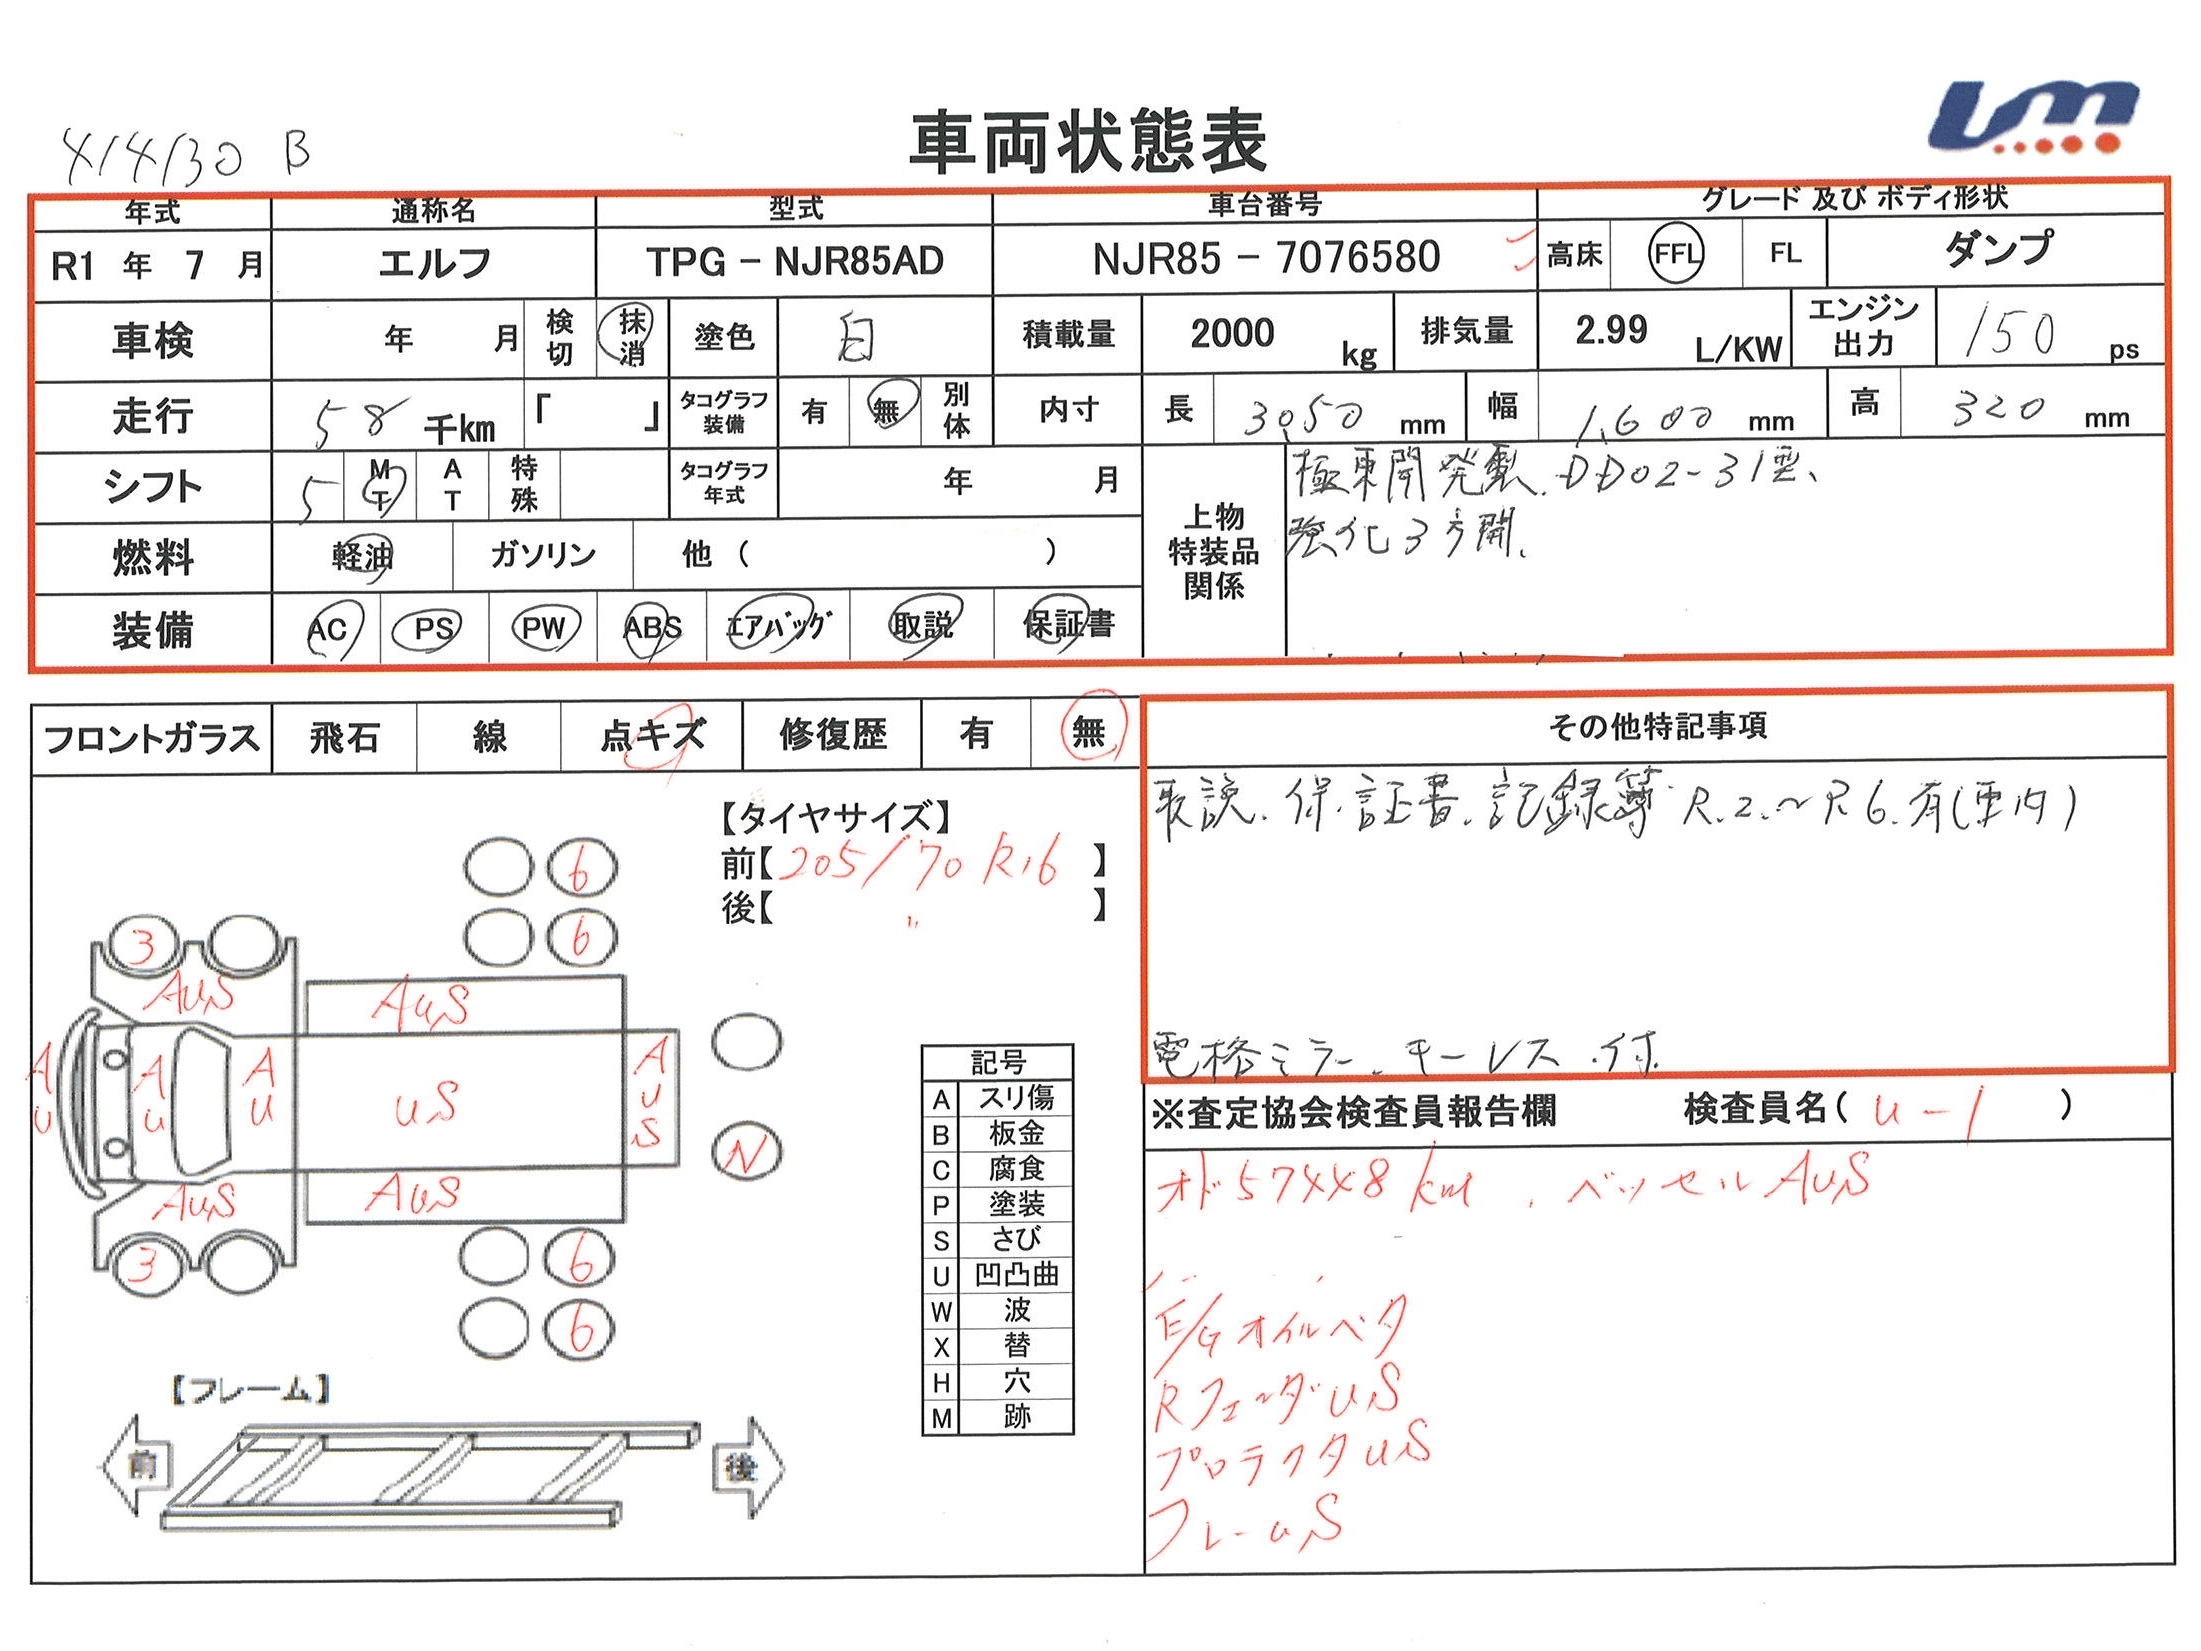 414130 B
車両状態表
um
年式 通称名 型式 車台番号 グレード 及び ボディ形状
R1 年 7 月 エルフ TPG － NJR85AD NJR85 － 7076580 高床 FFL FL ダンプ
車検 年 月 検切 抹消 塗色 白 積載量 2000 kg 排気量 2.99 L/KW エンジン出力 150 ps
走行 58 千km 「 」 タコグラフ装備 有 無 別体 内寸 長 3,050 mm 幅 1,600 mm 高 320 mm
シフト 5 MT AT 特殊 タコグラフ年式 年 月
上物特装品関係
極東開発製、DD02-31型、
強化3方開、
燃料 軽油 ガソリン 他 （ ）
装備 AC PS PW ABS エアバッグ 取説 保証書
フロントガラス 飛石 線 点キズ 修復歴 有 無
その他特記事項
取説、保証書、記録簿 R.2.～R6.有(車内)
電格ミラー、キーレス 付.
【タイヤサイズ】
前【205/70 R16】
後【 〃 】
6
6
3
AUS AUS
AU AU AU US AUS
N
AUS AUS
3
6
6
記号
A スリ傷
B 板金
C 腐食
P 塗装
S さび
U 凹凸曲
W 波
X 替
H 穴
M 跡
【フレーム】
前 後
※査定協会検査員報告欄 検査員名（ u-1 ）
オド57448km 、ベッセルAUS
E/Gオイルベタ
RフェンダUS
プロテクタUS
フレームS